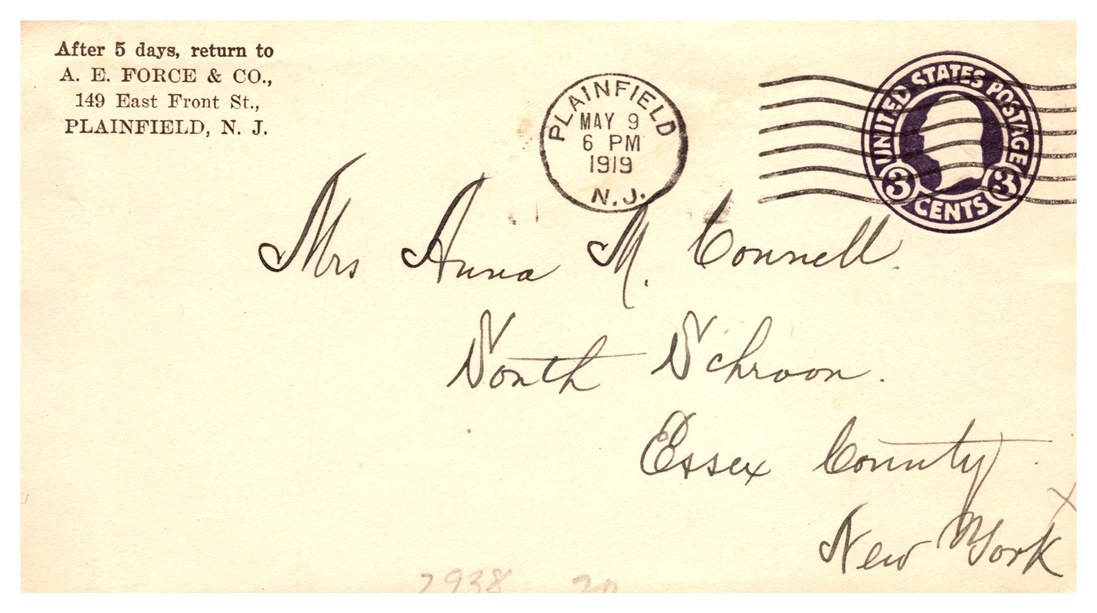 After 5 days, return to
A. E. FORCE & CO.,
149 East Front St.,
PLAINFIELD, N. J.
PLAINFIELD
MAY 9
6 PM
1919
N.J.
UNITED STATES POSTAGE
3 CENTS 3
Mrs Anna M. Connell.
South Schroon.
Essex County.
New York
2938